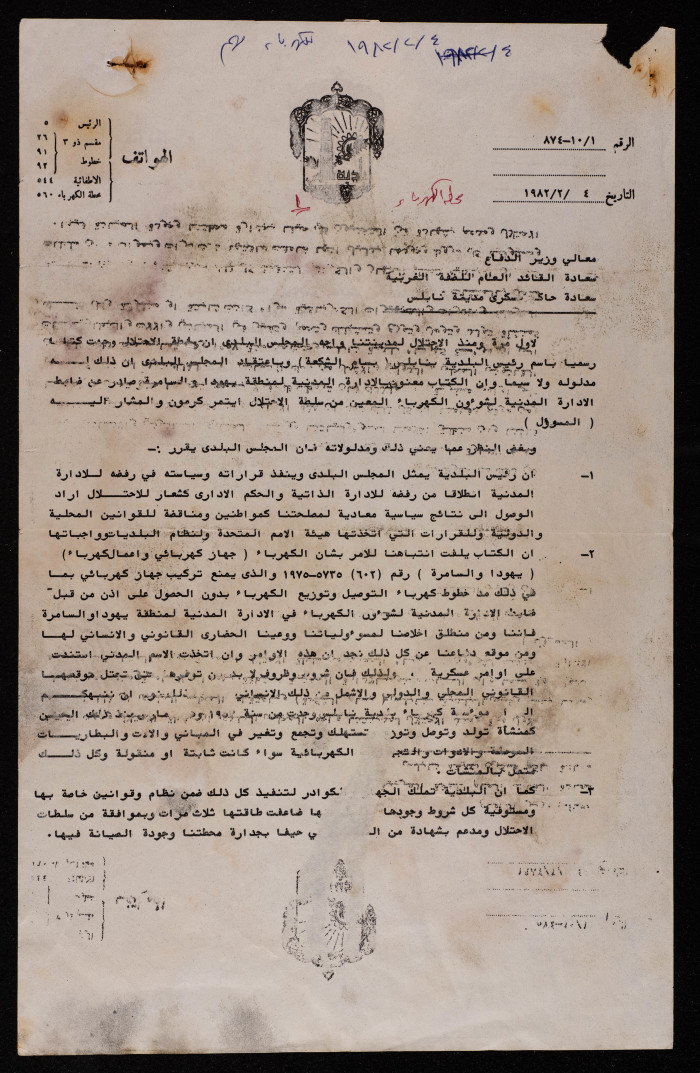 ١٩٨٢/٢/٤
كهرباء
١٩٨٢/٢/٤
الرقم ١٠/١-٨٧٤
التاريخ ٤ /٢/ ١٩٨٢
الهواتف
الرئيس ٥
مقسم ذو ٣ خطوط ٢٦ ٩١ ٩٢
الاطفائية ٥٤٤
محطة الكهرباء ٥٦٠
محطة الكهرباء
١
معالي وزير الدفاع
سعادة القائد العام للضفة الغربية
سعادة حاكم عسكرى مدينة نابلس
لاول مرة ومنذ الاحتلال لمدينتنا واجه المجلس البلدى ان سلطة الاحتلال وجهت كتابا
رسميا باسم رئيس البلدية بنابلس ( بسام الشكعة ) وباعتقاد المجلس البلدى ان ذلك لـــه
مدلوله ولا سيما وان الكتاب معنون بالادارة المدنية لمنطقة يهودا والسامرة صادر عن ضابط
الادارة المدنية لشوءون الكهرباء المعين من سلطة الاحتلال ايتمر كرمون والمشار اليـــه
( المسوؤل )
وبغض النظر عما يعني ذلك ومدلولاته فان المجلس البلدى يقرر :-
١- ان رئيس البلدية يمثل المجلس البلدى وينفذ قراراته وسياسته في رفضه للادارة
المدنية انطلاقا من رفضه للادارة الذاتية والحكم الادارى كشعار للاحتـــلال اراد
الوصول الى نتائج سياسية معادية لمصلحتنا كمواطنين ومناقضة للقوانين المحلية
والدولية وللقرارات التي اتخذتها هيئة الامم المتحدة ولنظام البلديات وواجباتها
٢- ان الكتاب يلفت انتباهنا للامر بشان الكهرباء ( جهاز كهربائي واعمال كهرباء )
( يهودا والسامرة ) رقم (٦٠٢) ٥٧٣٥-١٩٧٥ والذى يمنع تركيب جهاز كهربائي بما
في ذلك مد خطوط كهرباء التوصيل وتوزيع الكهرباء بدون الحصول على اذن من قبل
ضابط الادارة المدنية لشوءون الكهرباء في الادارة المدنية لمنطقة يهودا والسامرة
فاننا ومن منطلق اخلاصنا لمسوءولياتنا ووعينا الحضارى القانوني والانساني لهــا
ومن موقع دفاعنا عن كل ذلك نجد ان هذه الاوامر وان اتخذت الاسم المدني استندت
على اوامر عسكرية ولذلك فان شروط وظروف لا بد من توفرها حتى تحتل موقعهـا
القانوني المحلي والدولي والاشمل من ذلك الانساني ان ننبهكـــم
كهرباء بلدية نابلس وجدت من سنة ومنذ ذلك الحيـن
كمنشأة تولد وتوصل وتوزع تستهلك وتجمع وتغير في المباني والالات والبطاريـــات
الكهربائية سواء كانت ثابتة او منقولة وكل ذلــك
متصل بالمنشات .
٣- كما ان البلدية تملك كوادر لتنفيذ كل ذلك ضمن نظام وقوانين خاصة بها
ومستوفية كل شروط وجودها ضاعفت طاقتها ثلاث مرات وبموافقة من سلطات
الاحتلال ومدعم بشهادة من في حيفا بجدارة محطتنا وجودة الصيانة فيها .